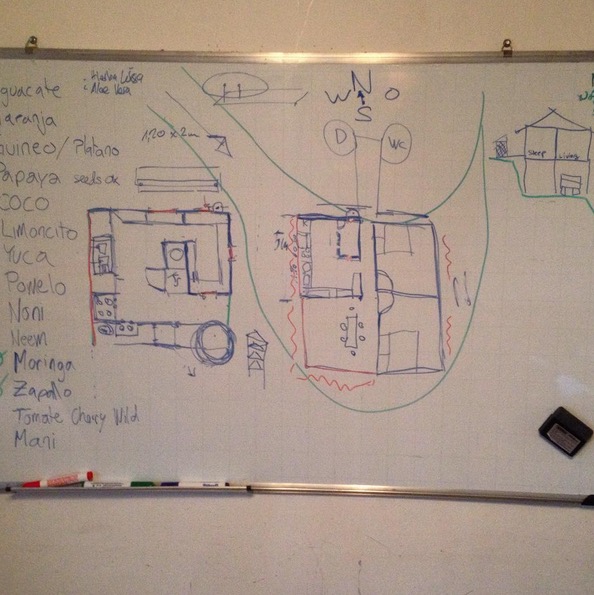 guacate
aranja
uineo/ Platano
Papaya seeds ok
COCO
Limoncito
Yuca
Pomelo
Noni
Neem
Moringa
Zapallo
Tomate Cherry Wild
Mani
• Aloe Vera
1,20 x 2m
N
W O
S
D
WC
sleep
Living